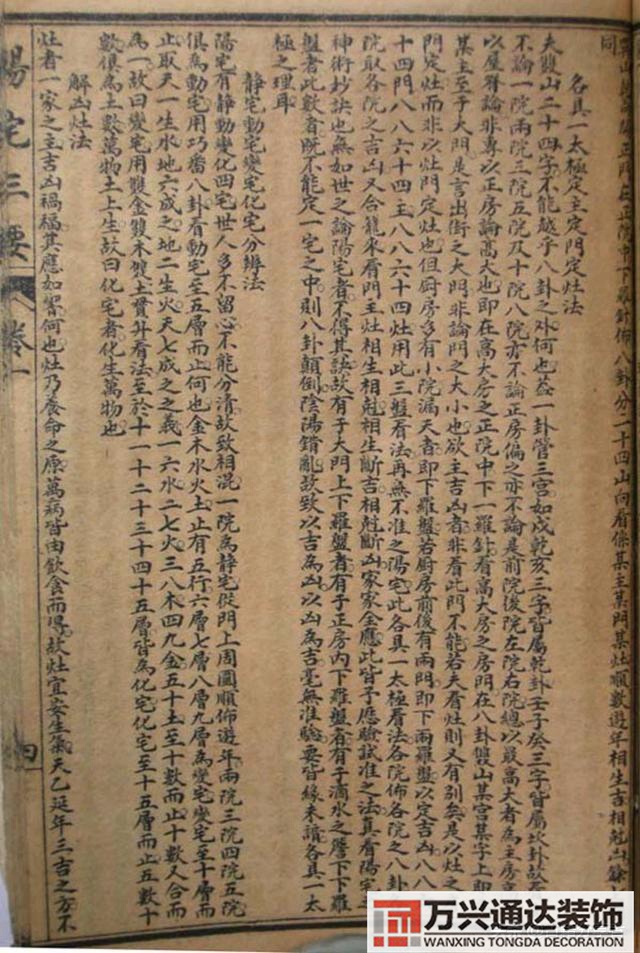 各具一太極定主定門定灶法
夫雙山二十四字不能越乎八卦之外何也蓋一卦管三宮如戌乾亥三字皆屬乾卦壬子癸三字皆屬坎卦故
不論一院兩院三院五院及十院八院亦不論正房偏之亦不論是前院後院左院右院總以最高大者為主房
以屋脊論非專以正房論高大也即在高大房之正院中下一羅針看高大房之房門在八卦雙山某宮某字上即
某主至于大門是言出街之大門非論門之大小也欲主吉凶者非看此門不能若夫看灶則又有別矣是以灶之
門定灶而非以灶門定灶也但厨房多有小院漏天者即下羅盤若厨房前後有兩門即下兩羅盤以定吉凶八八
十四門八八六十四主八八六十四灶用此三盤看法再無不准之陽宅此各具一太極看法各院佈各院之八卦
院取各院之吉凶又合籠來看門主灶相生相尅相生斷吉相尅斷凶家家全應此皆予歷驗試准之法真看陽宅
神術妙訣也無如世之論陽宅者不得其訣故有于大門上下羅盤者有于正房内下羅盤者有于滴水之簷下下羅
盤者此數者既不能定一宅之中則八卦顛倒陰陽錯亂故致以吉為凶以凶為吉毫無准驗要皆緣未讀各具一太
極之理耳
靜宅動宅變宅化宅分辨法
陽宅有靜動變化四宅世人多不留心不能分清故致相混一院為靜宅從門上周圍順佈遊年兩院三院四院五院
俱為動宅用巧番八卦看動宅至五層而止何也金木水火土止有五行六層七層八層九層為變宅變宅至十層而
止取天一生水地六成之地二生火天七成之之義一六水二七火三八木四九金五十土至十數而止十數又合而
為一故曰變宅用雙金雙木雙土貫井看法至於十一十二十三十四十五層皆為化宅化宅至十五層而止五數十
數俱為土數萬物土上生故曰化宅者化生萬物也
解凶灶法
灶者一家之主吉凶禍福其應如響何也灶乃養命之原萬病皆由飲食而得故灶宜安生氣天乙延年三吉之方不
陽宅三要
卷一
四
万兴通达装饰
WANXING TONGDA DECORATION